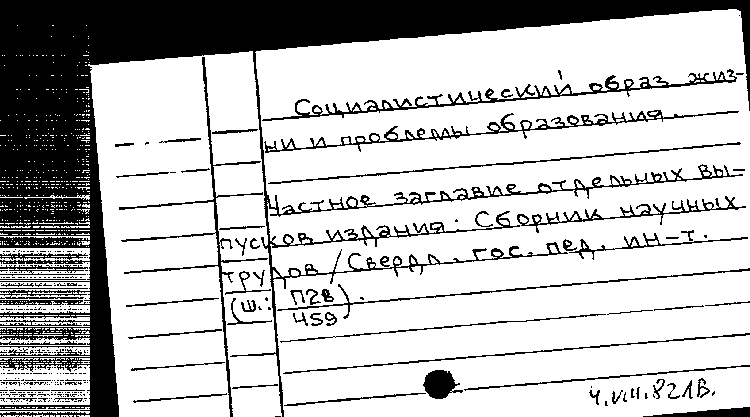 Социалистический образ жиз-
ни и проблемы образования.
Частное заглавие отдельных вы-
пусков издания: Сборник научных
трудов / Свердл. гос. пед. ин-т.
(ш.: П28
459).